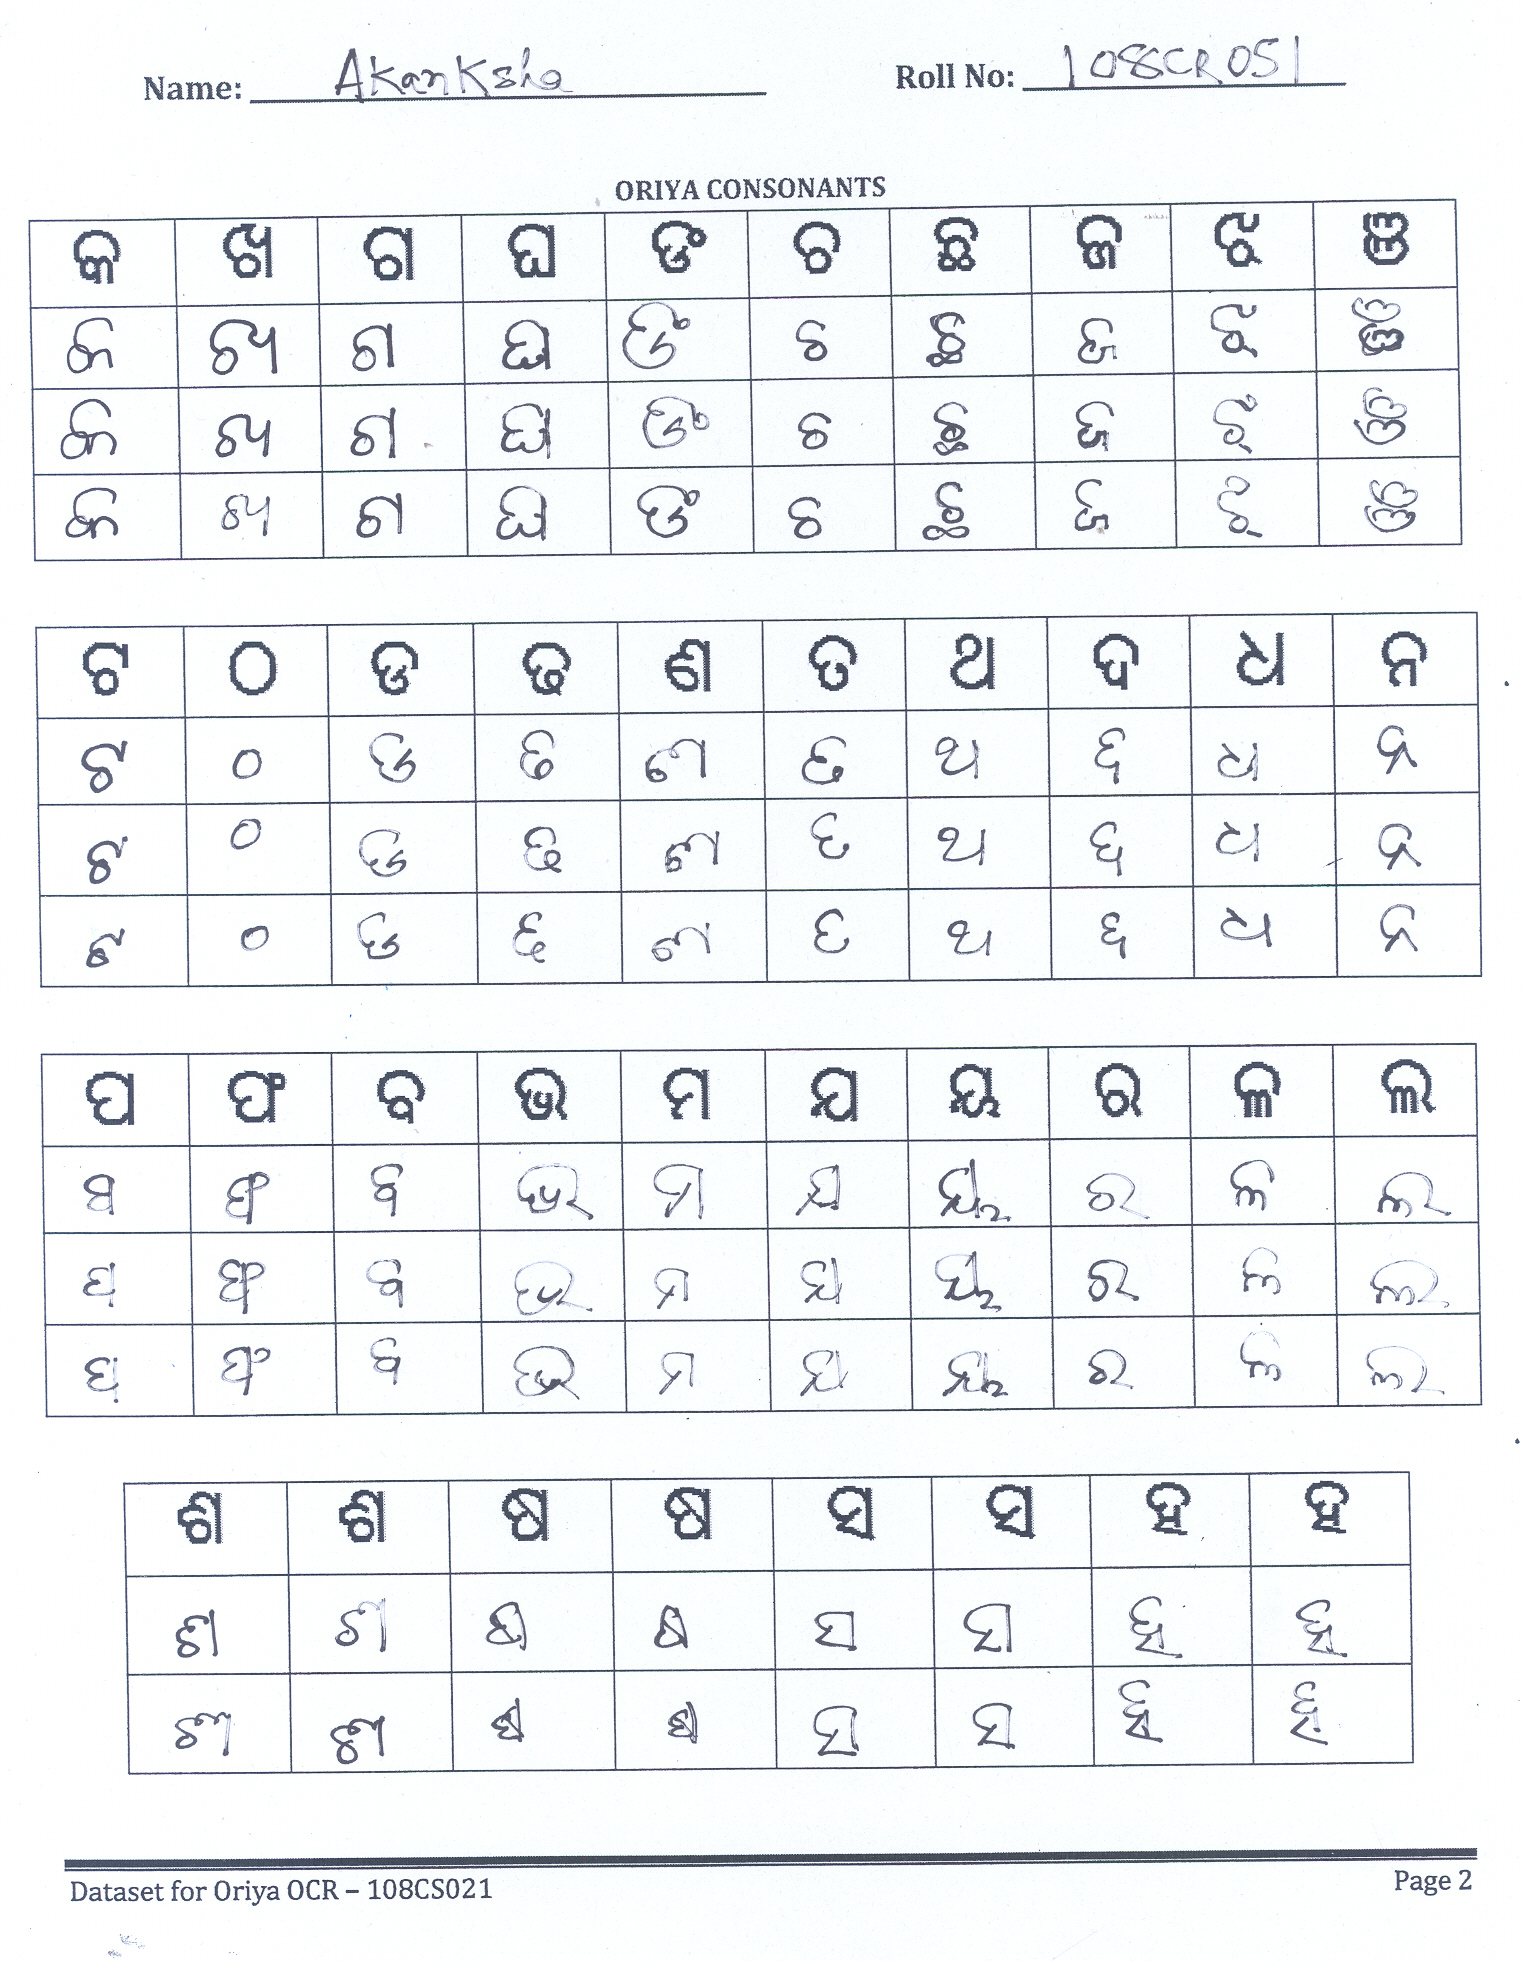 Name: Akanksha Roll No: 108CR051
ORIYA CONSONANTS
କ ଖ ଗ ଘ ଙ ଚ ଛ ଜ ଝ ଞ
କ ଖ ଗ ଘ ଙ ଚ ଛ ଜ ଝ ଞ
କ ଖ ଗ ଘ ଙ ଚ ଛ ଜ ଝ ଞ
କ ଖ ଗ ଘ ଙ ଚ ଛ ଜ ଝ ଞ
ଟ ଠ ଡ ଢ ଣ ତ ଥ ଦ ଧ ନ
ଟ ଠ ଡ ଢ ଣ ତ ଥ ଦ ଧ ନ
ଟ ଠ ଡ ଢ ଣ ତ ଥ ଦ ଧ ନ
ଟ ଠ ଡ ଢ ଣ ତ ଥ ଦ ଧ ନ
ପ ଫ ବ ଭ ମ ଯ ୟ ର ଳ ଲ
ପ ଫ ବ ଭ ମ ଯ ୟ ର ଳ ଲ
ପ ଫ ବ ଭ ମ ଯ ୟ ର ଳ ଲ
ପ ଫ ବ ଭ ମ ଯ ୟ ର ଳ ଲ
ଶ ଶ ଷ ଷ ସ ସ ହ ହ
ଶ ଶ ଷ ଷ ସ ସ ହ ହ
ଶ ଶ ଷ ଷ ସ ସ ହ ହ
Dataset for Oriya OCR – 108CS021 Page 2